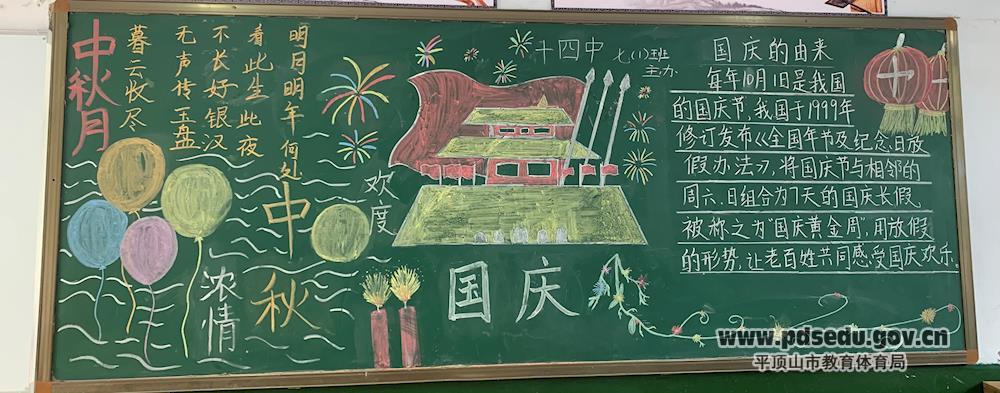 中秋月
暮云收尽
无声传玉盘
不长好银汉
看此生此夜
明月明年何处
中秋
浓情
欢度
国庆
十四中 七(1)班
主办
国庆的由来
每年10月1日是我国
的国庆节,我国于1999年
修订发布《全国年节及纪念日放
假办法》,将国庆节与相邻的
周六、日组合为7天的国庆长假,
被称之为“国庆黄金周”,用放假
的形势,让老百姓共同感受国庆欢乐。
中
www.pdsedu.gov.cn
平顶山市教育体育局